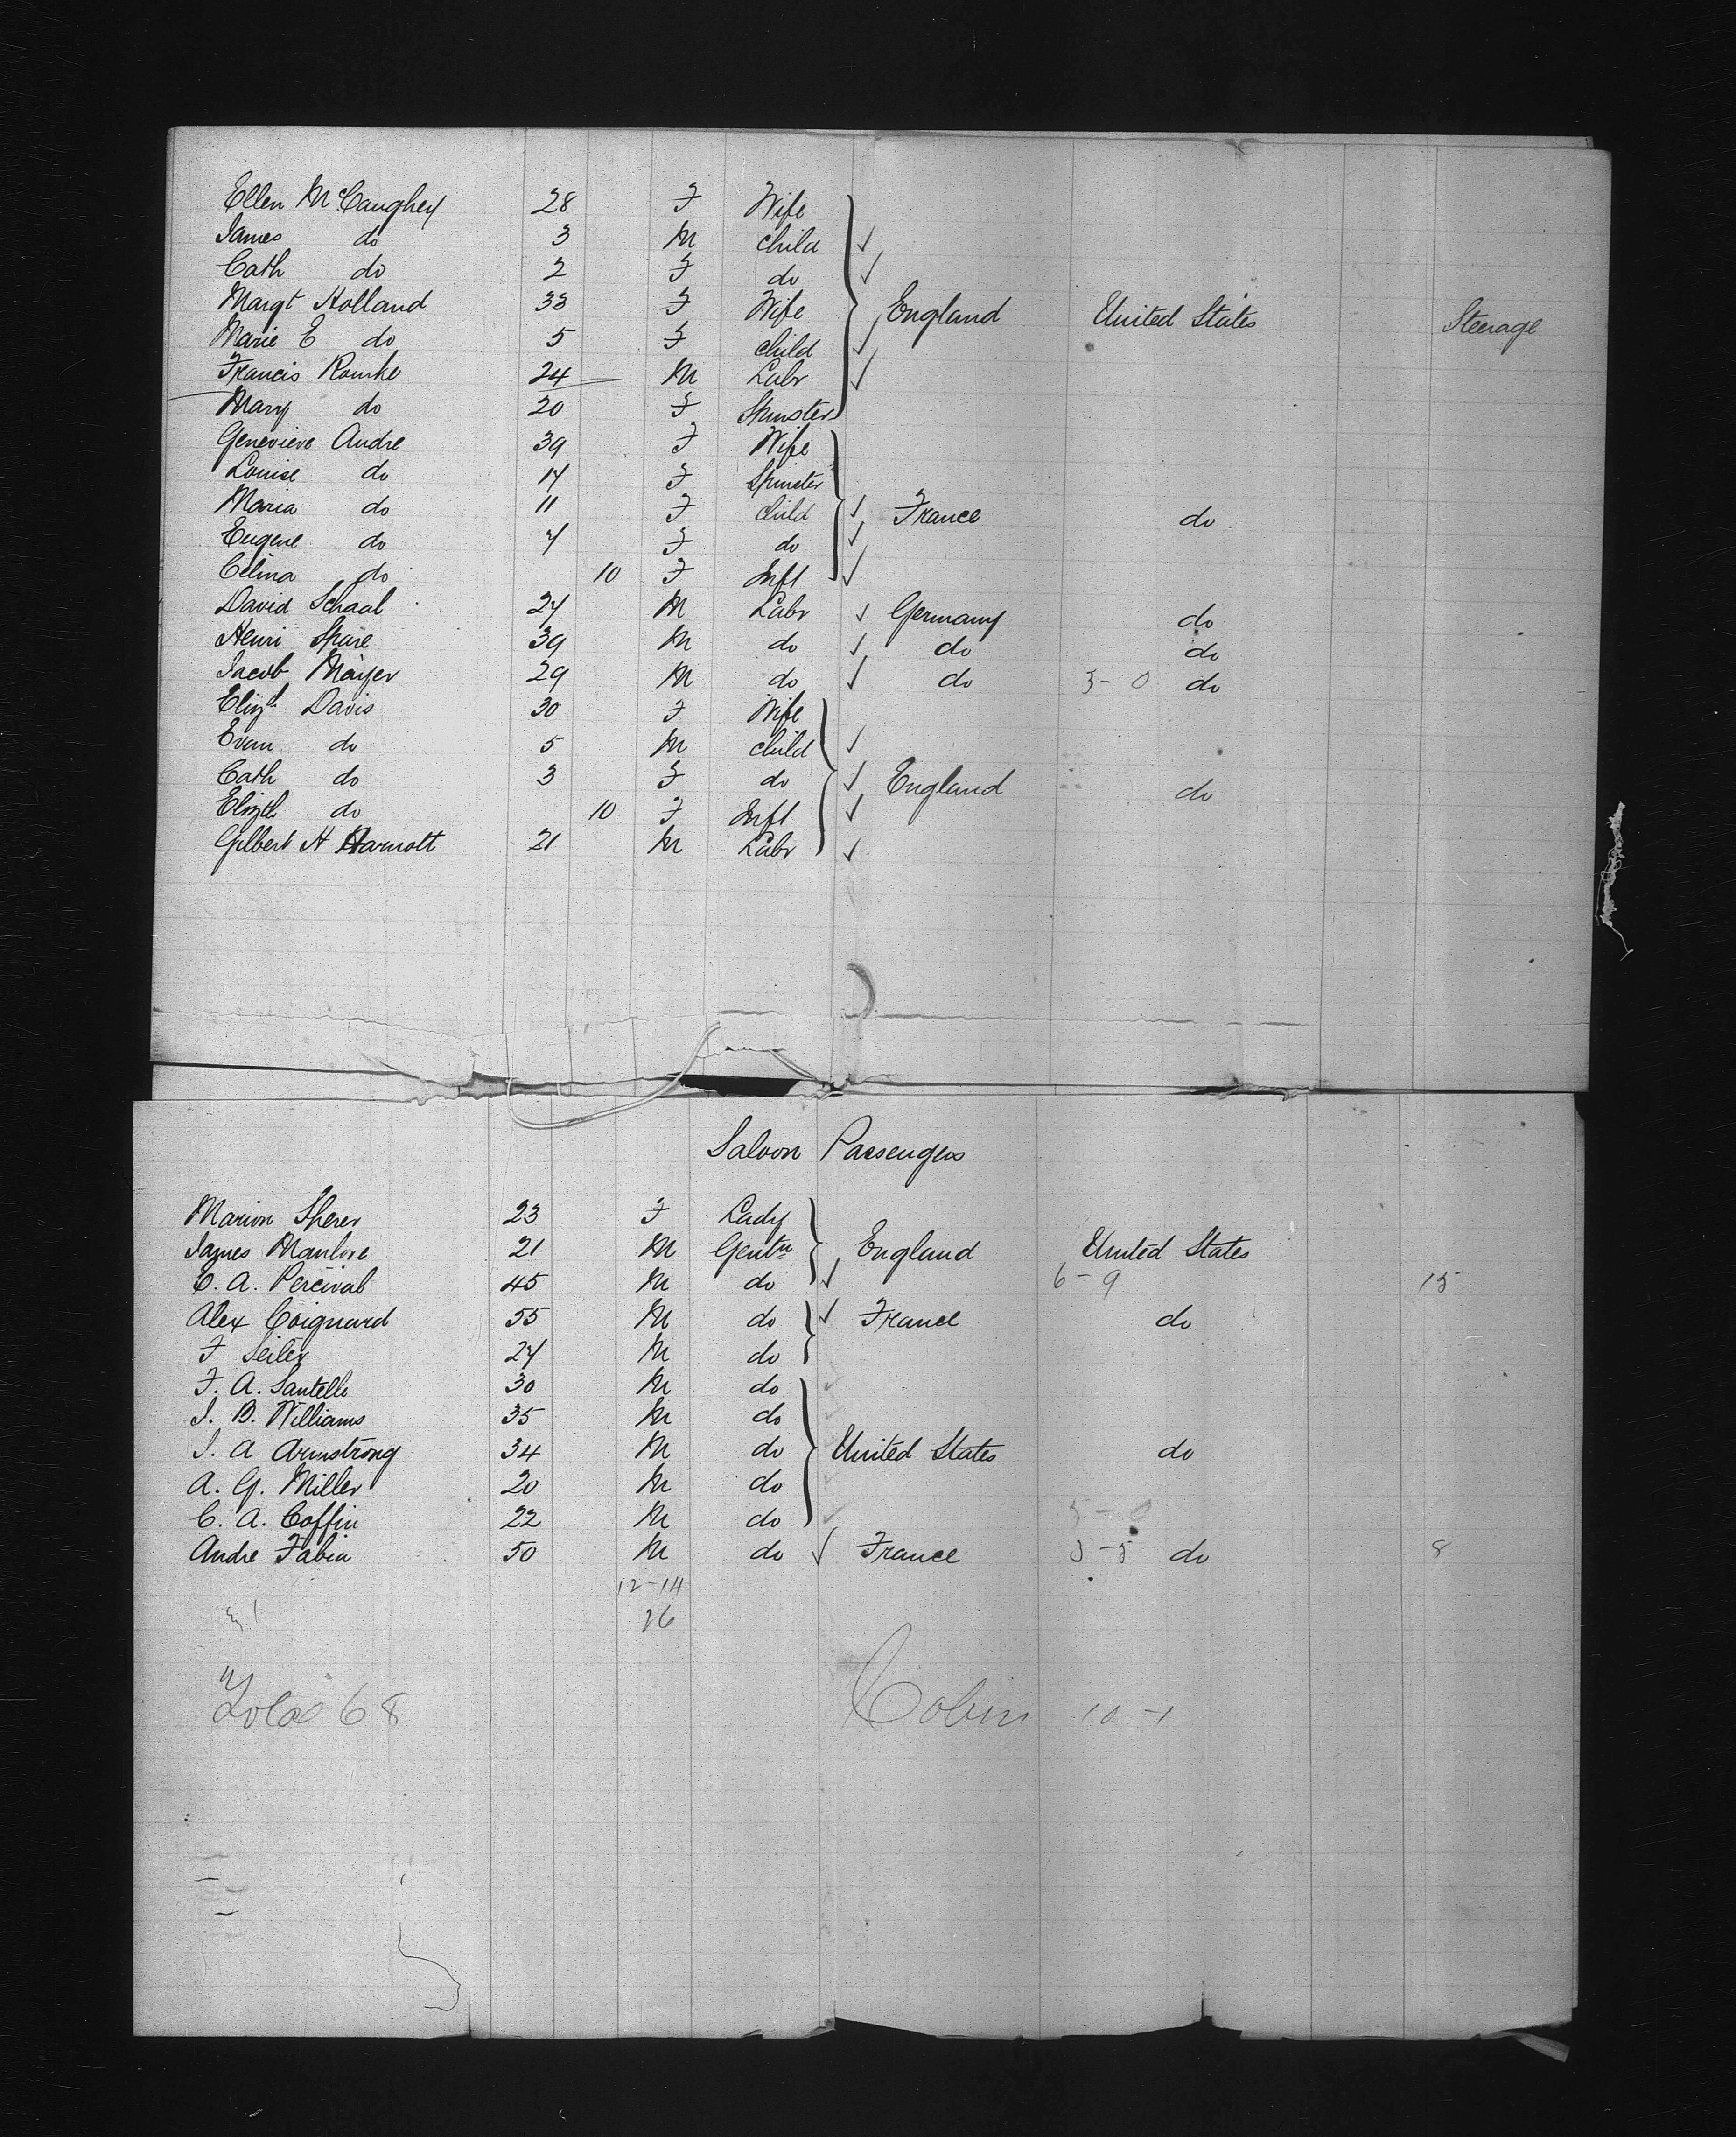 Ellen McCaughey 28 F Wife
James do 3 M child
Cath do 2 F do
Margt Holland 33 F Wife England United States Steerage
Marie E do 5 F child
Francis Rourke 24 M Labr
Mary do 20 F Spinster
Genevieve Andre 39 F Wife
Louise do 17 F Spinster
Maria do 11 F child France do
Eugene do 7 F do
Celina do 10 F Inft
David Schaal 27 M Labr Germany do
Henri Spare 39 M do do do
Jacob Mayer 29 M do do 3-0 do
Elizth Davis 30 F Wife
Evan do 5 M child
Cath do 3 F do England do
Elizth do 10 F Inft
Gilbert H Harnott 21 M Labr
Saloon Passengers
Marion Sherer 23 F Lady
James Manlove 21 M Gentn England United States
C. A. Percival 45 M do 6-9 15
Alex Coignard 55 M do France do
F Seiler 27 M do
F. A. Santelli 30 M do
J. B. Williams 35 M do
J. A Armstrong 34 M do United States do
A. G. Miller 20 M do
C. A. Coffin 22 M do 5-0
Andre Fabia 50 M do France 3-5 do 8
12-14
26
68 Cobin 10-1